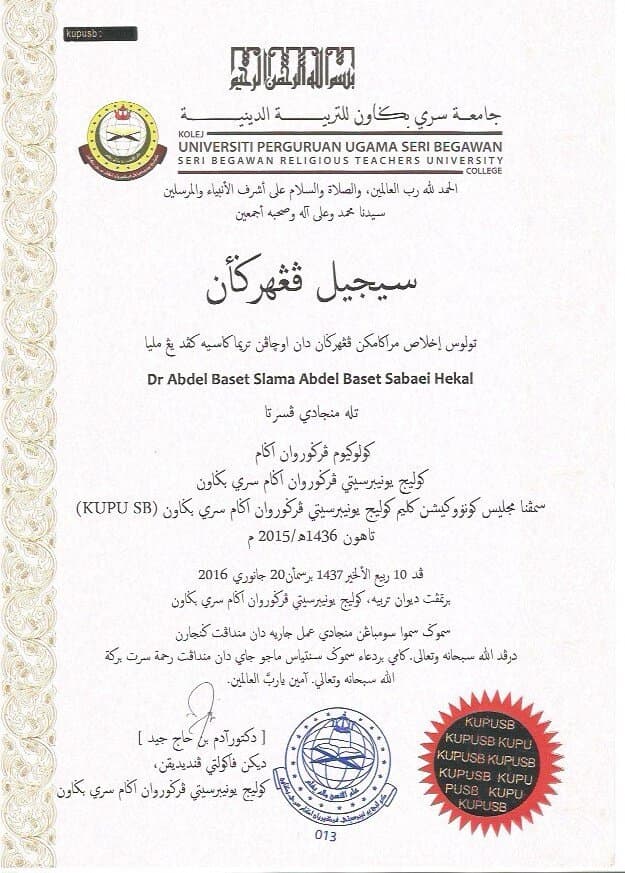 kupusb:
بسم الله الرحمن الرحيم
جامعة سري بڬاون للتربية الدينية
KOLEJ
UNIVERSITI PERGURUAN UGAMA SERI BEGAWAN
SERI BEGAWAN RELIGIOUS TEACHERS UNIVERSITY
COLLEGE
الحمد لله رب العالمين، والصلاة والسلام على أشرف الأنبياء والمرسلين
سيدنا محمد وعلى آله وصحبه أجمعين
سيجيل ڤڠهرڬأن
تولوس إخلاص مراكامكن ڤڠهرڬأن دان اوچاڤن تريما كاسيه كڤد يڠ مليا
Dr Abdel Baset Slama Abdel Baset Sabaei Hekal
تله منجادي ڤسرتا
كولوكيوم ڤرڬوروان اݢام
كوليج يونيبرسيتي ڤرڬوروان اݢام سري بڬاون
سمڤنا مجليس كونۏوكيشن كليم كوليج يونيبرسيتي ڤرڬوروان اݢام سري بڬاون (KUPU SB)
تاهون 1436هـ/2015 م
ڤد 10 ربيع الأخير 1437 برسمأن 20 جانوري 2016
برتمڤت ديوان تربيه، كوليج يونيبرسيتي ڤرڬوروان اݢام سري بڬاون
سموڬ سموا سومباڠن منجادي عمل جاريه دان منداڤت ڬنجارن
درڤد الله سبحانه وتعالى. كامي بردعاء سموڬ سنتياس ماجو جاي دان منداڤت رحمة سرت بركة
الله سبحانه وتعالى. آمين يا ربَّ العالمين.
[ دكتور آدم بن حاج جيد ]
ديكن فاكولتي ڤنديديقن،
كوليج يونيبرسيتي ڤرڬوروان اݢام سري بڬاون
013
KUPUSB
KUPUSB KUPU
KUPUSB KUPUSB
KUPUSB KUPU
PUSB KUPU
KUPUSB